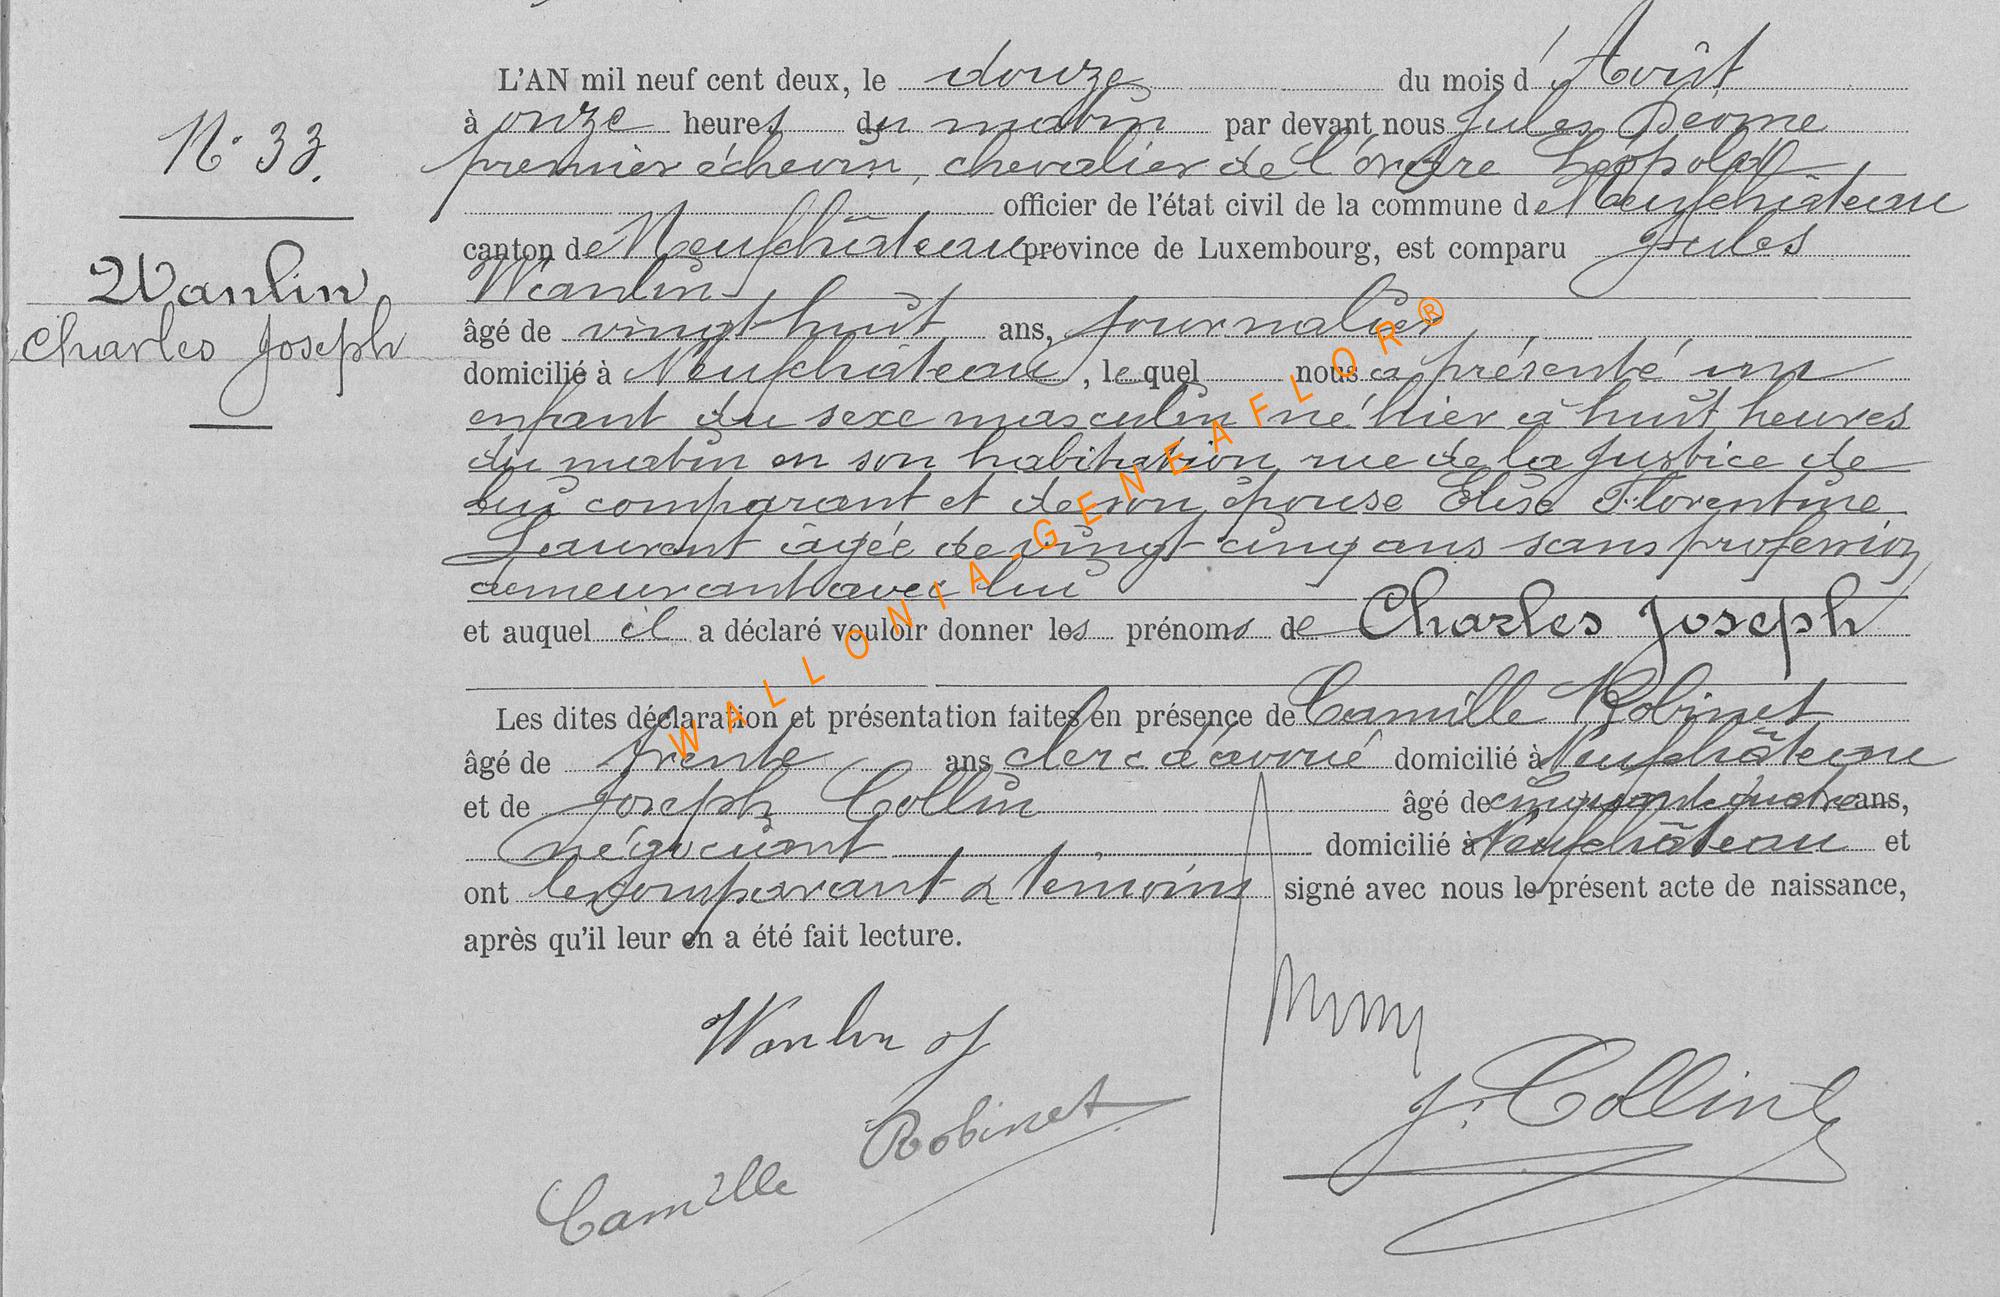 L'AN mil neuf cent deux, le douze du mois d'Août
à onze heures du matin par devant nous Jules Déome
premier échevin, chevalier de l'ordre Léopold
officier de l'état civil de la commune de Neufchâteau
canton de Neufchâteau province de Luxembourg, est comparu Jules
Wanlin
âgé de vingt-huit ans, journalier
domicilié à Neufchâteau, lequel nous a présenté un
enfant du sexe masculin né hier à huit heures
du matin en son habitation, rue de la Justice de
lui comparant et de son épouse Elise Florentine
Laurent âgée de vingt-cinq ans sans profession
demeurant avec lui
et auquel il a déclaré vouloir donner les prénoms de Charles Joseph
Les dites déclaration et présentation faites en présence de Camille Robinet
âgé de trente ans clerc d'avoué domicilié à Neufchâteau
et de Joseph Collin âgé de cinquante quatre ans,
négociant domicilié à Neufchâteau et
ont les comparant & témoins signé avec nous le présent acte de naissance,
après qu'il leur en a été fait lecture.
N° 33.
Wanlin
Charles Joseph
Wanlin
Camille Robinet
J. Collin
WALLONIA-GENEAFLOR®